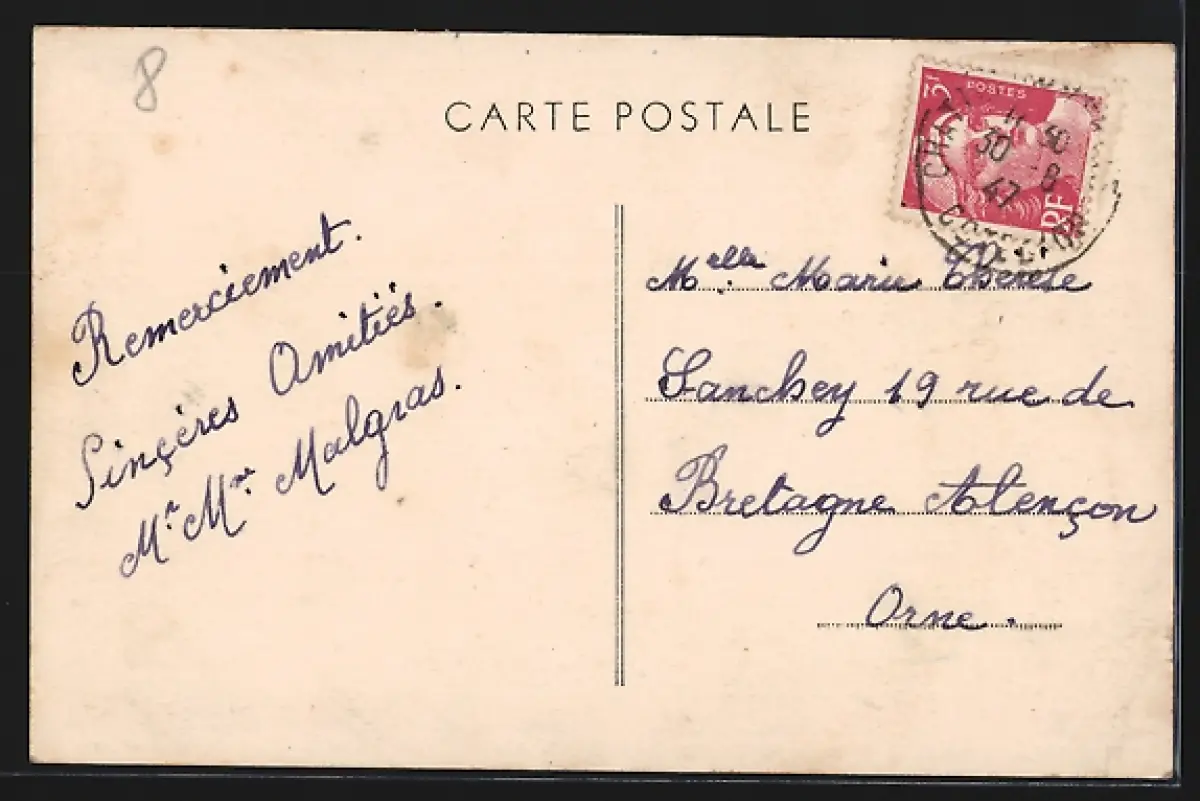 8
CARTE POSTALE
3F
POSTES
RF
11 30
30 -8
47
Remerciement.
Sinçères Amitiés.
Mr. Mme. Malgras.
Melle. Marie Thérèse
Lanchey 19 rue de
Bretagne Alençon
Orne.